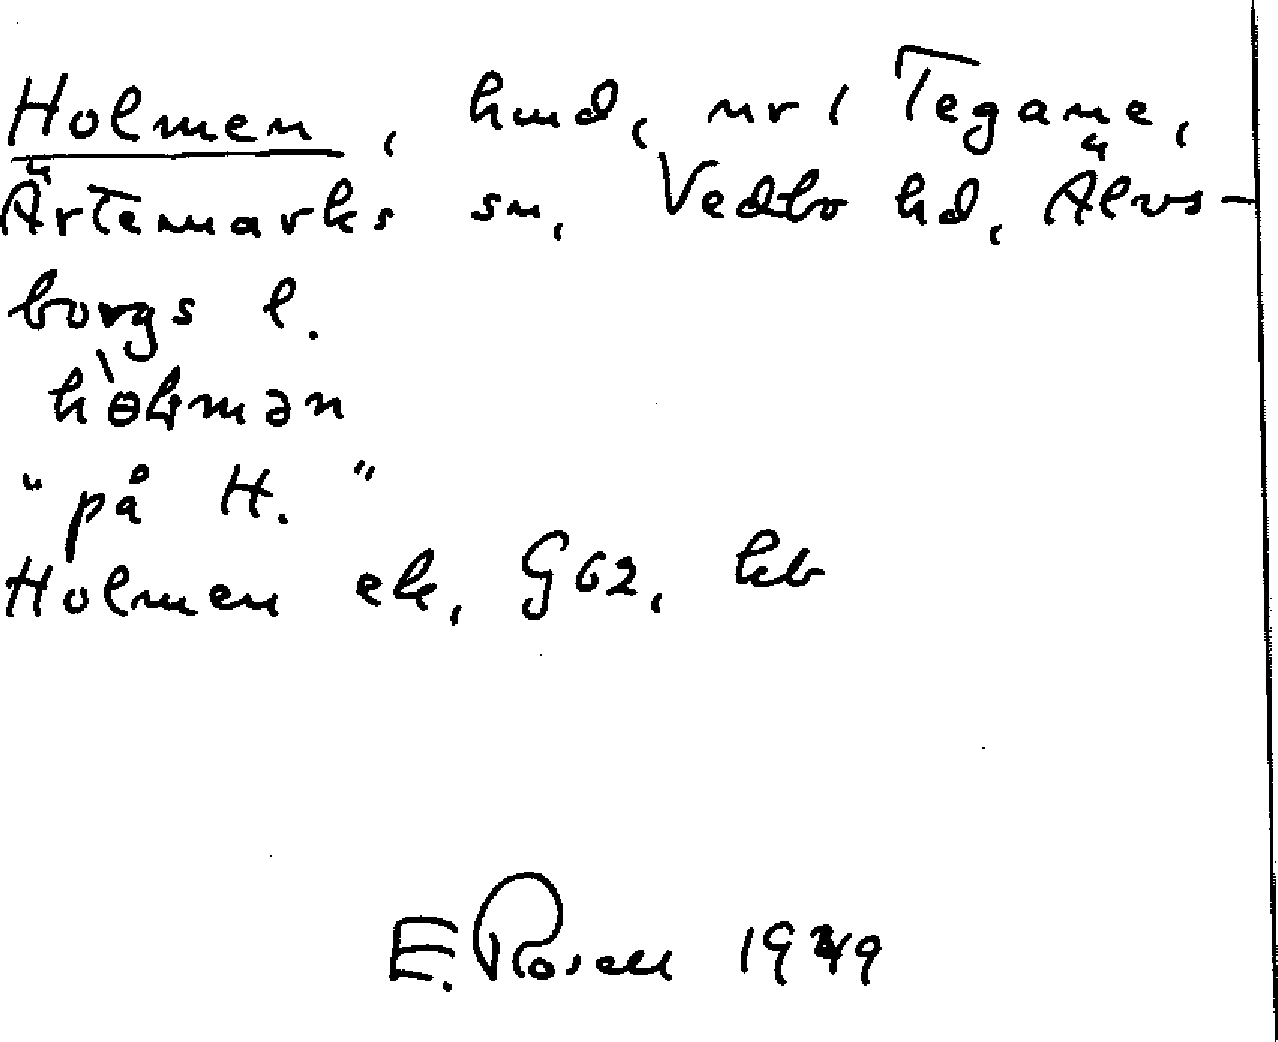 Holmen, hmd, nr 1 Tegane,
Ärtemarks sn, Vedbo hd, Älvs-
borgs l.
"på H."
Holmen ek, G62, kb
E. Rosell 1949